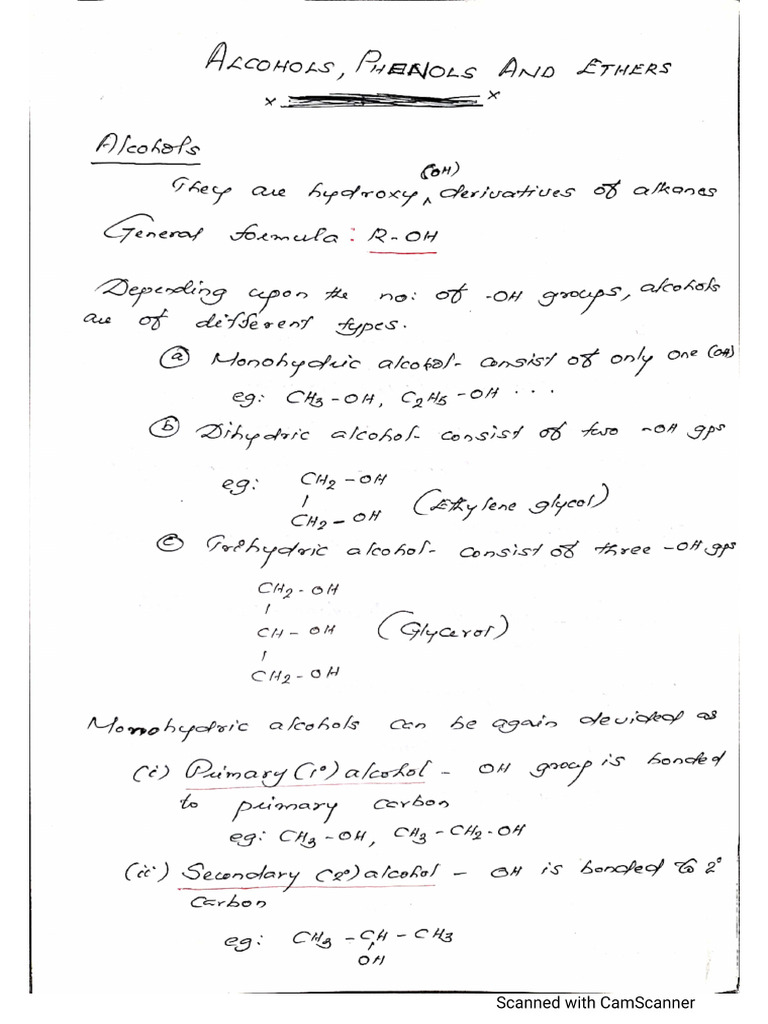 ALCOHOLS, PHENOLS AND ETHERS
Alcohols
They are hydroxy (OH) derivatives of alkanes
General formula: R-OH
Depending upon the no: of -OH groups, alcohols
are of different types.
(a) Monohydric alcohol - consist of only one (OH)
eg: CH3-OH, C2H5-OH ...
(b) Dihydric alcohol - consist of two -OH gps
eg: CH2-OH
|
CH2-OH (Ethylene glycol)
(c) Trihydric alcohol - consist of three -OH gps
CH2-OH
|
CH-OH (Glycerol)
|
CH2-OH
Monohydric alcohols can be again devided as
(i) Primary (1°) alcohol - OH group is bonded
to primary carbon
eg: CH3-OH, CH3-CH2-OH
(ii) Secondary (2°) alcohol - OH is bonded to 2°
carbon
eg: CH3-CH-CH3
OH
Scanned with CamScanner